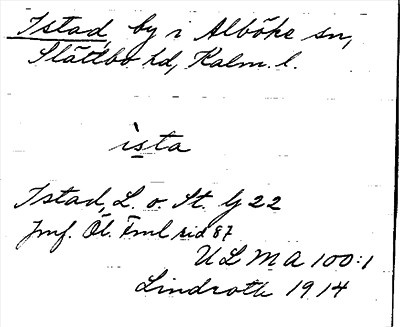 Istad, by i Alböke sn,
Slättbo hd, Kalm. l.
ista
Istad, L. o. St. G 22
Jmf. Öl. Fml sid 87
ULMA 100:1
Lindroth 1914